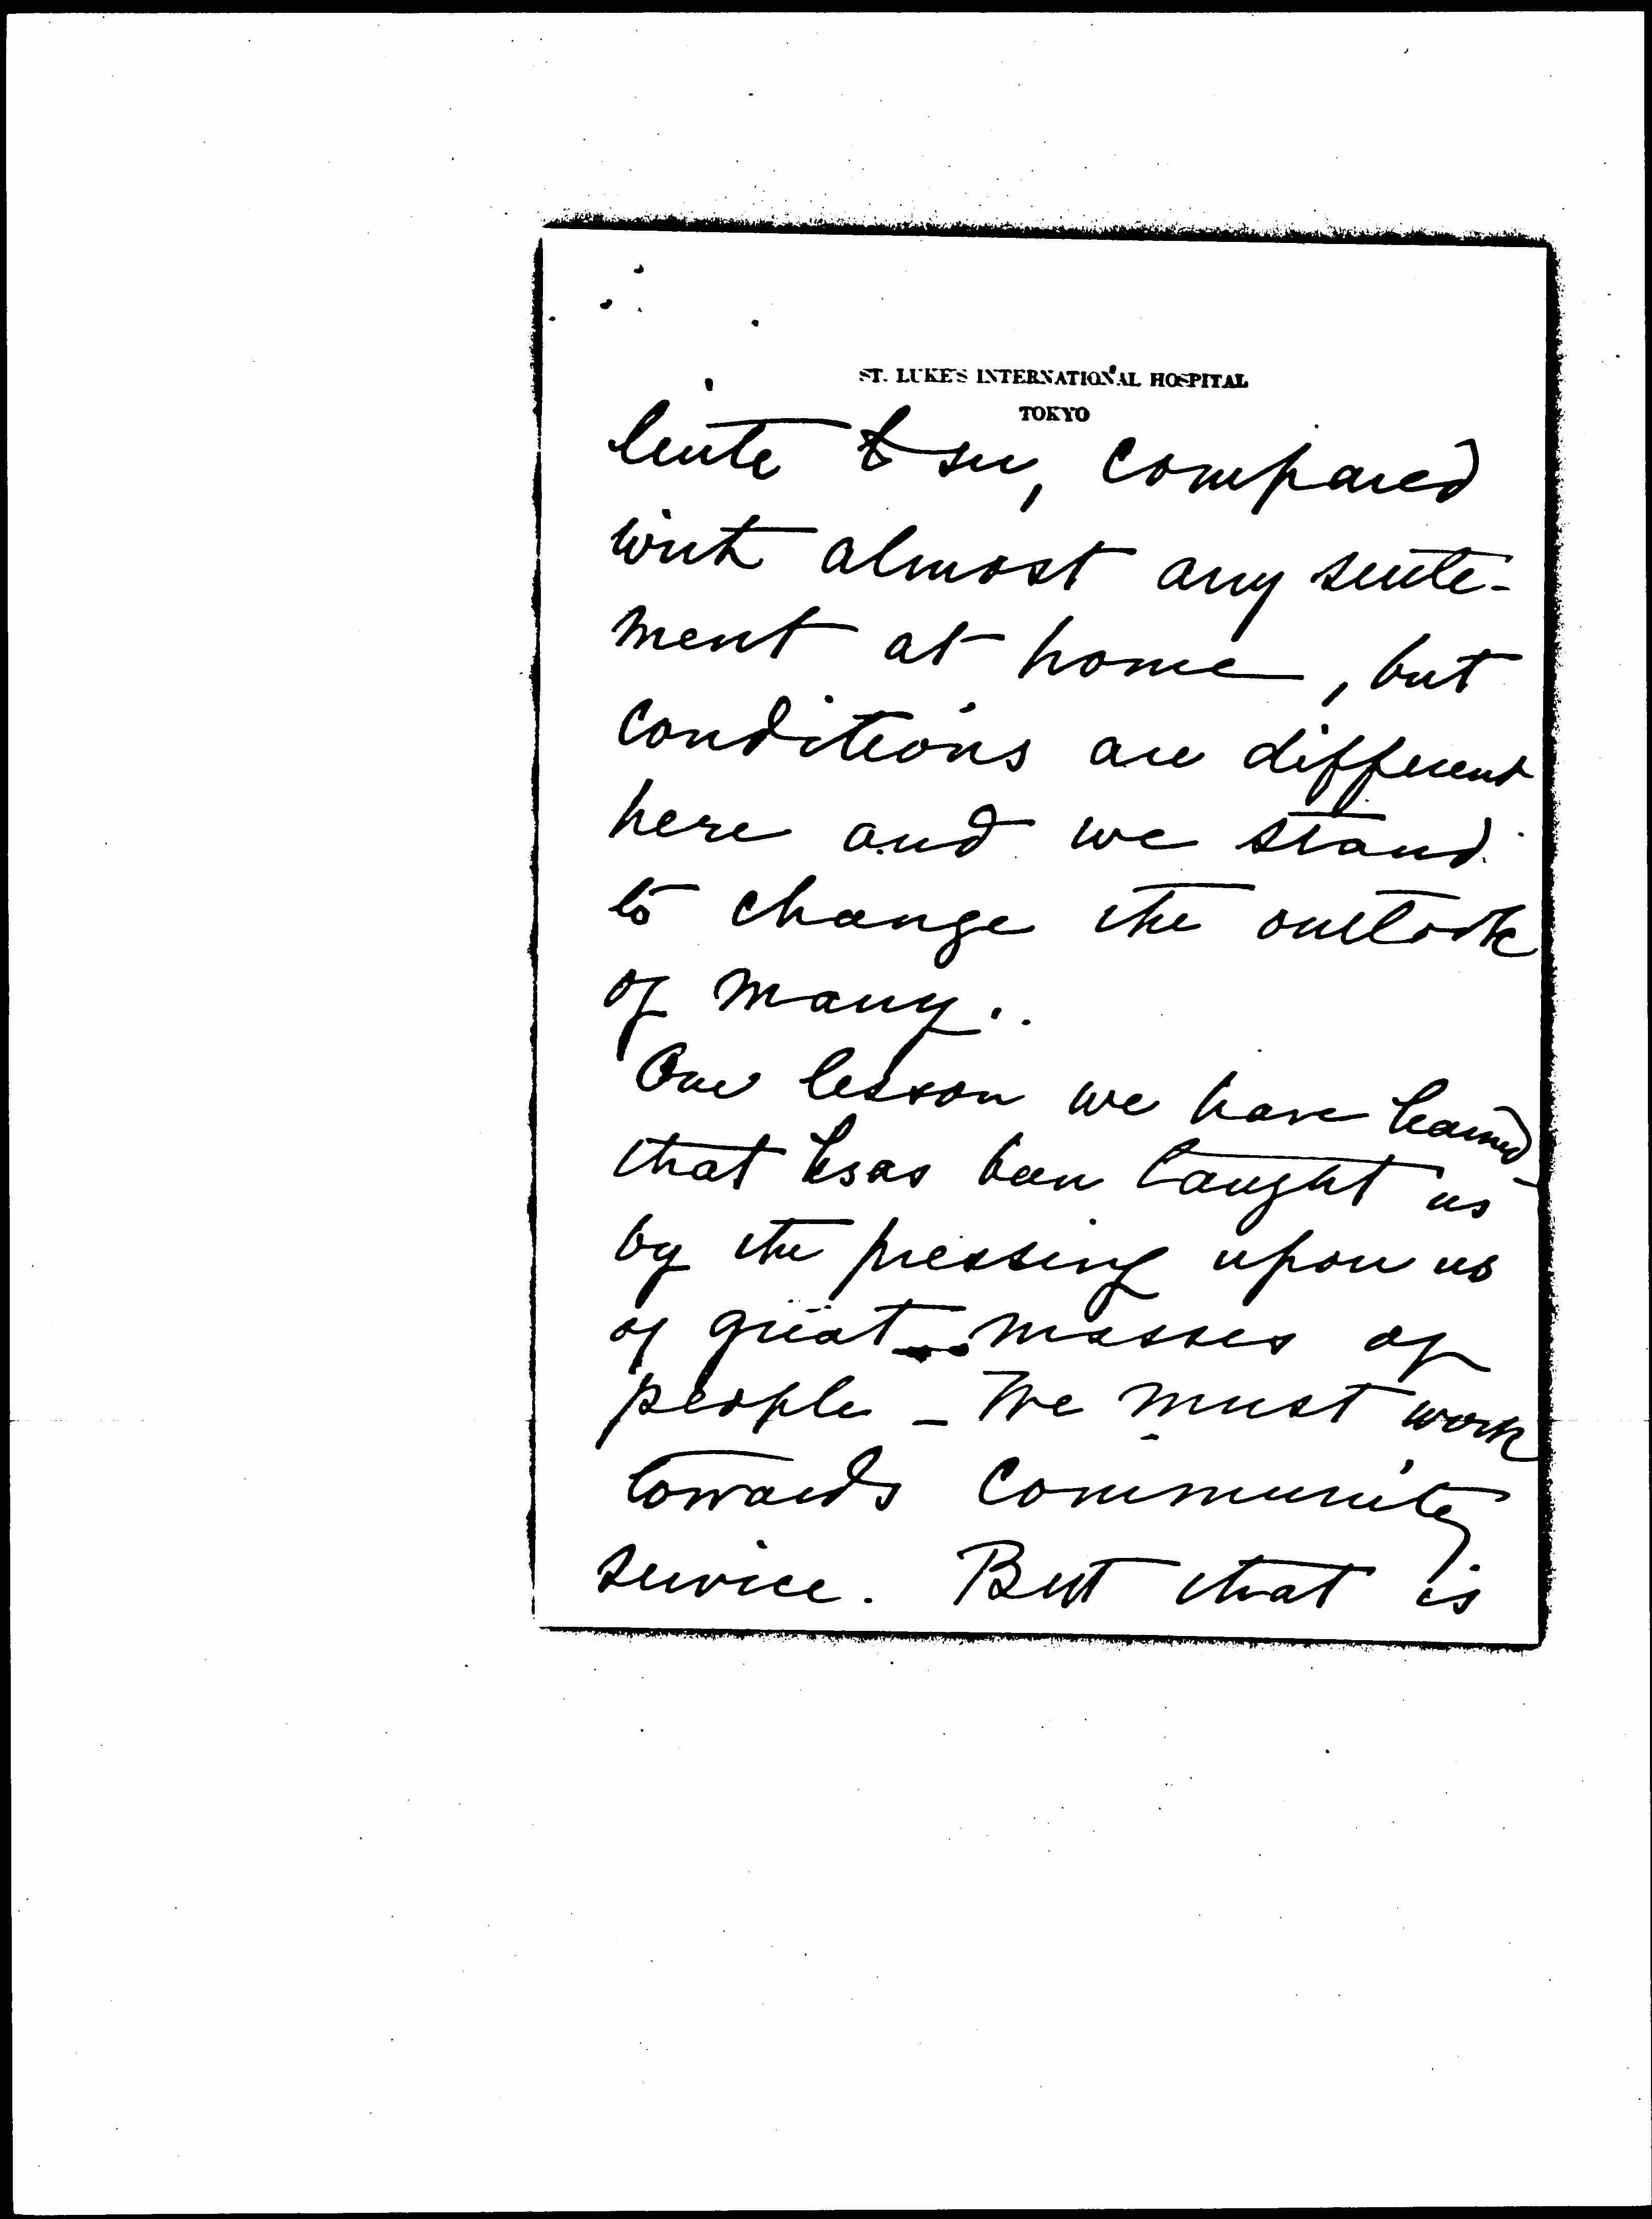 ST. LUKE'S INTERNATIONAL HOSPITAL
TOKYO
little to see, compared
with almost any settle-
ment at home, but
conditions are different
here and we stand
to change the outlook
of many.
One lesson we have learned
that has been taught us
by the pressing upon us
of great masses of
people – We must work
towards community
service. But that is